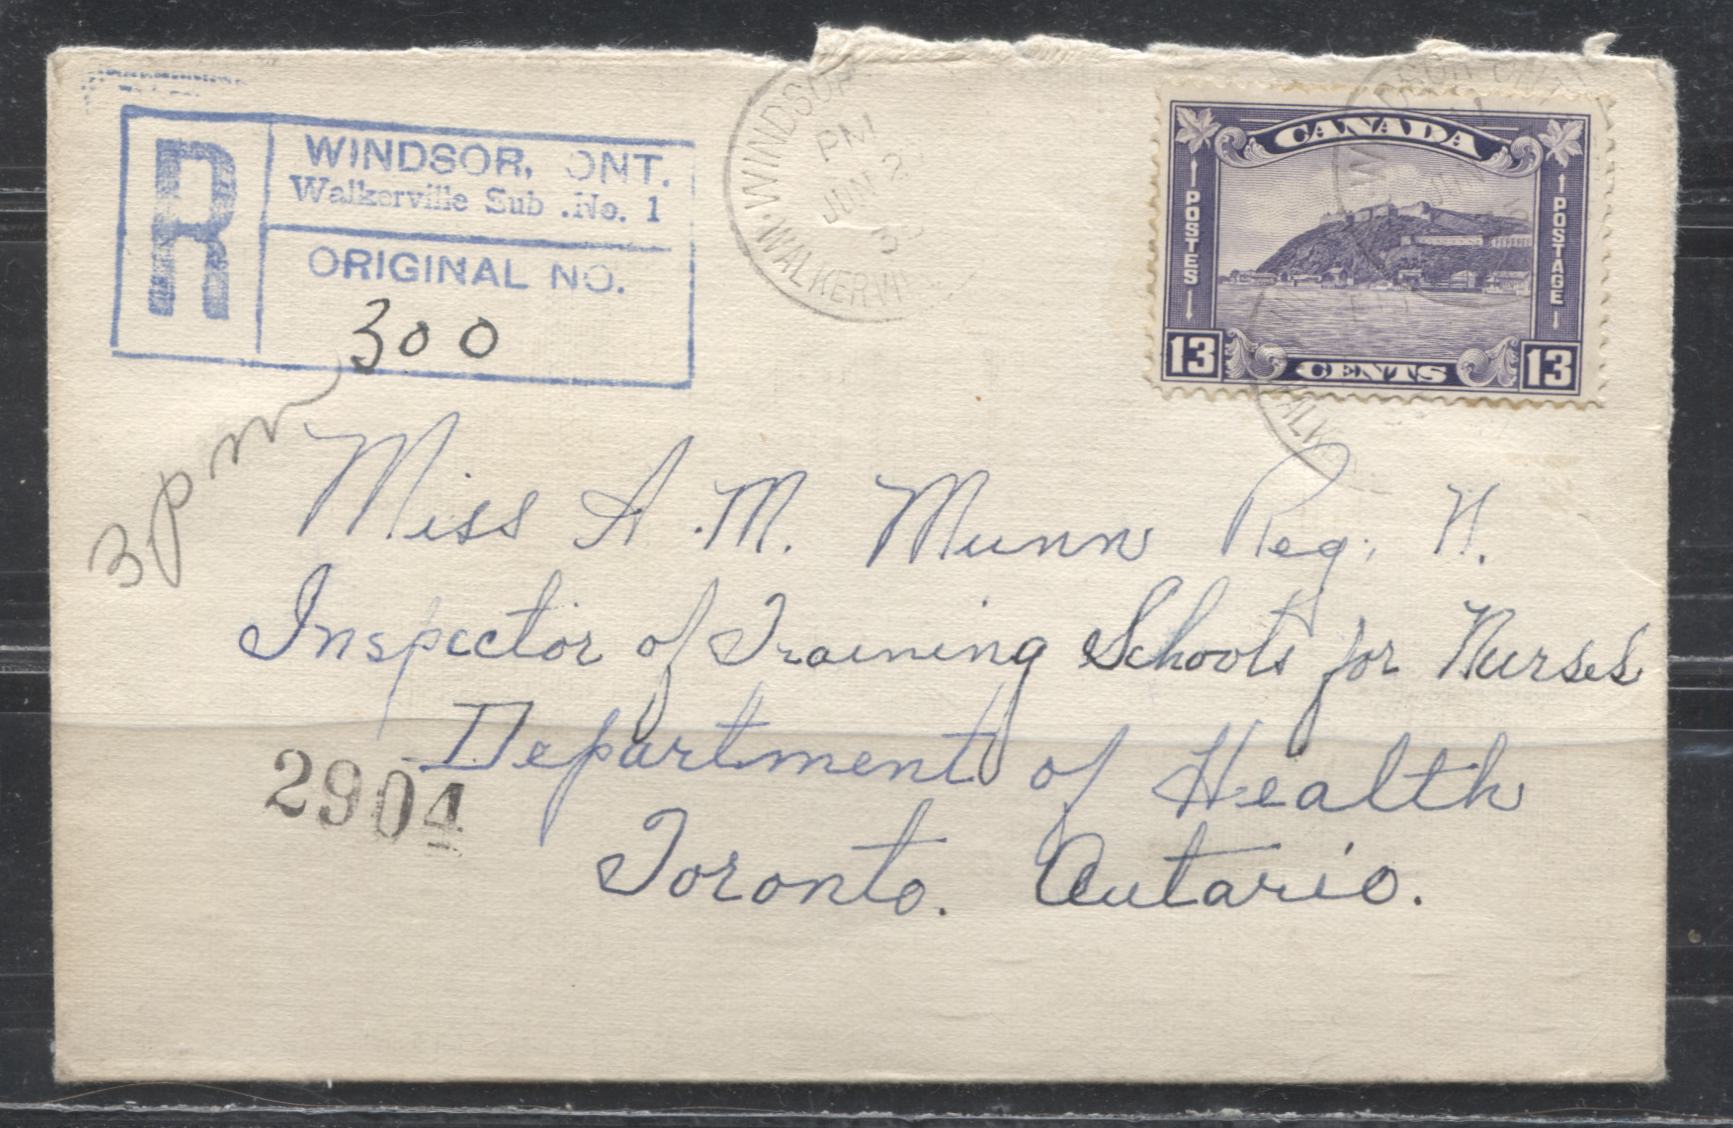 R
WINDSOR, ONT.
Walkerville Sub .No. 1
ORIGINAL NO.
300
WINDSOR
PM
JUN 2
WALKERVIL
CANADA
POSTES
POSTAGE
13 CENTS 13
3 pm
Miss A. M. Munn Reg. N.
Inspector of Training Schools for Nurses
Department of Health
2904
Toronto. Ontario.